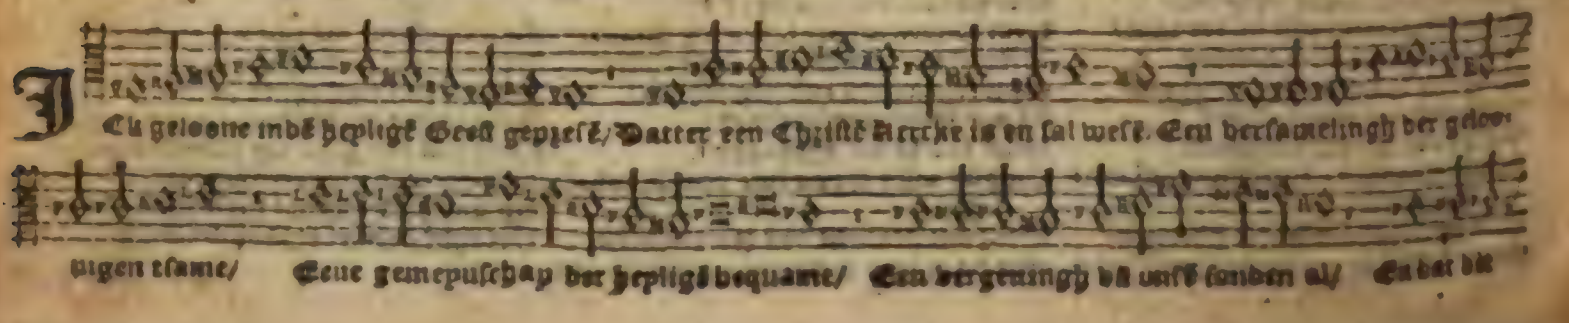 ICk geloove indē heyligē Geest geprese/ Datter een Christē Kercke is en sal wesē. Een versamelingh der geloo-
vigen tsame/ Eene gemeynschap der heyligē bequame/ Een vergevingh vā onsē sonden al/ En dat dit